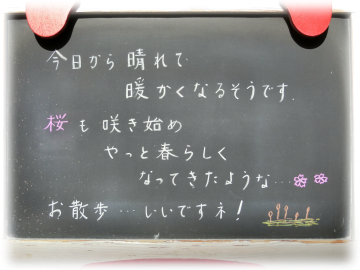 今日から晴れで
暖かくなるそうです.
桜も咲き始め
やっと春らしく
なってきたような...
お散歩...いいですネ!